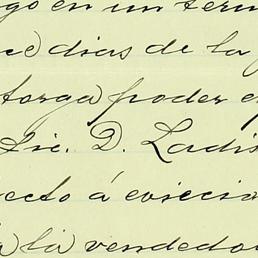 go en un térm
ce dias de la f
torga poder e
Lic. D. Ladis
ecto á eviccio
a la vendedo